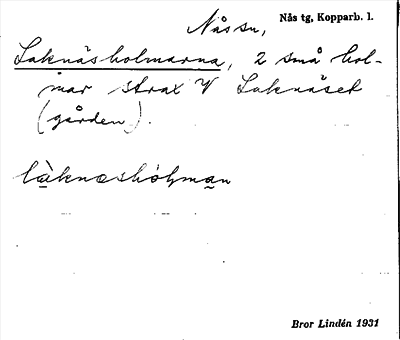 Nås sn, Nås tg, Kopparb. l.
Laknäsholmarna, 2 små hol-
mar strax V Laknäset
(gården).
làknæshòḷman
Bror Lindén 1931